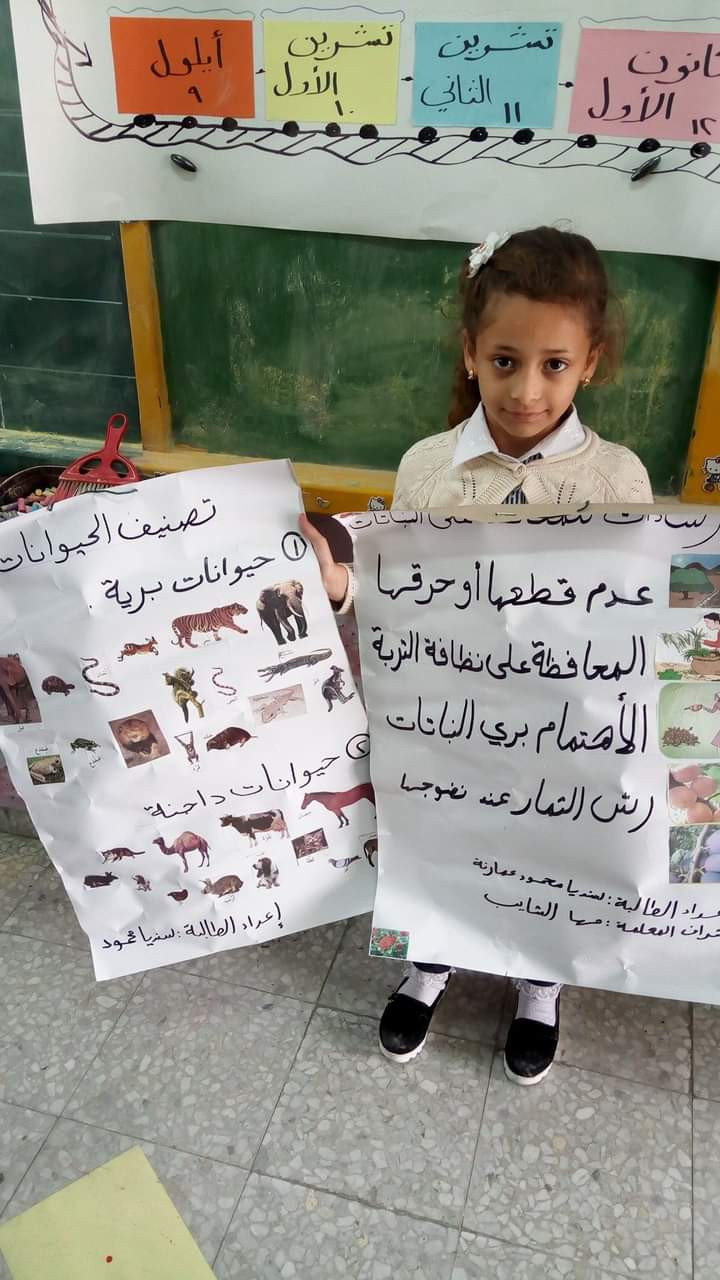 أيلول
٩
تشرين
الأول
١٠
تشرين
الثاني
١١
الأول
١٢
تصنيف الحيوانات
١ حيوانات برية .
٢ حيوانات داجنة
إعداد الطالبة : سنديا محمود
على النباتات
عدم قطعها أو حرقها
المحافظة على نظافة التربة
الأهتمام بري النباتات
رش الثمار عند نضوجها
الطالبة : سنديا محمود عمارنة
المعلمة : مها الشايب